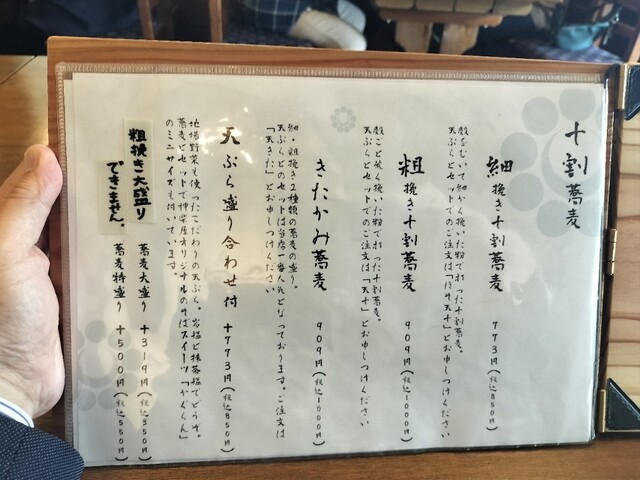 十割蕎麦
細挽き十割蕎麦 773円(税込850円)
殻をむいて細かく挽いた粉で打った十割蕎麦。
天ぷらとセットでのご注文は「ほそ天十」とお申しつけください
粗挽き十割蕎麦 909円(税込1000円)
殻ごと粗く挽いた粉で打った十割蕎麦。
天ぷらとセットでのご注文は「天十」とお申しつけください
きたかみ蕎麦 909円(税込1000円)
細、粗挽き2種類の蕎麦の盛り。
天ぷらとのセットは当店一番人気となっております。ご注文は
「天きた」とお申しつけください
天ぷら盛り合わせ付 +773円(税込850円)
地場野菜を使ったこだわりの天ぷら。岩塩と抹茶塩でどうぞ。
蕎麦とセットで神楽屋オリジナルのそばスイーツ「かぐらん」
のミニサイズも付いています。
蕎麦大盛り +319円(税込350円)
蕎麦特盛り +500円(税込550円)
粗挽き大盛り
できません。